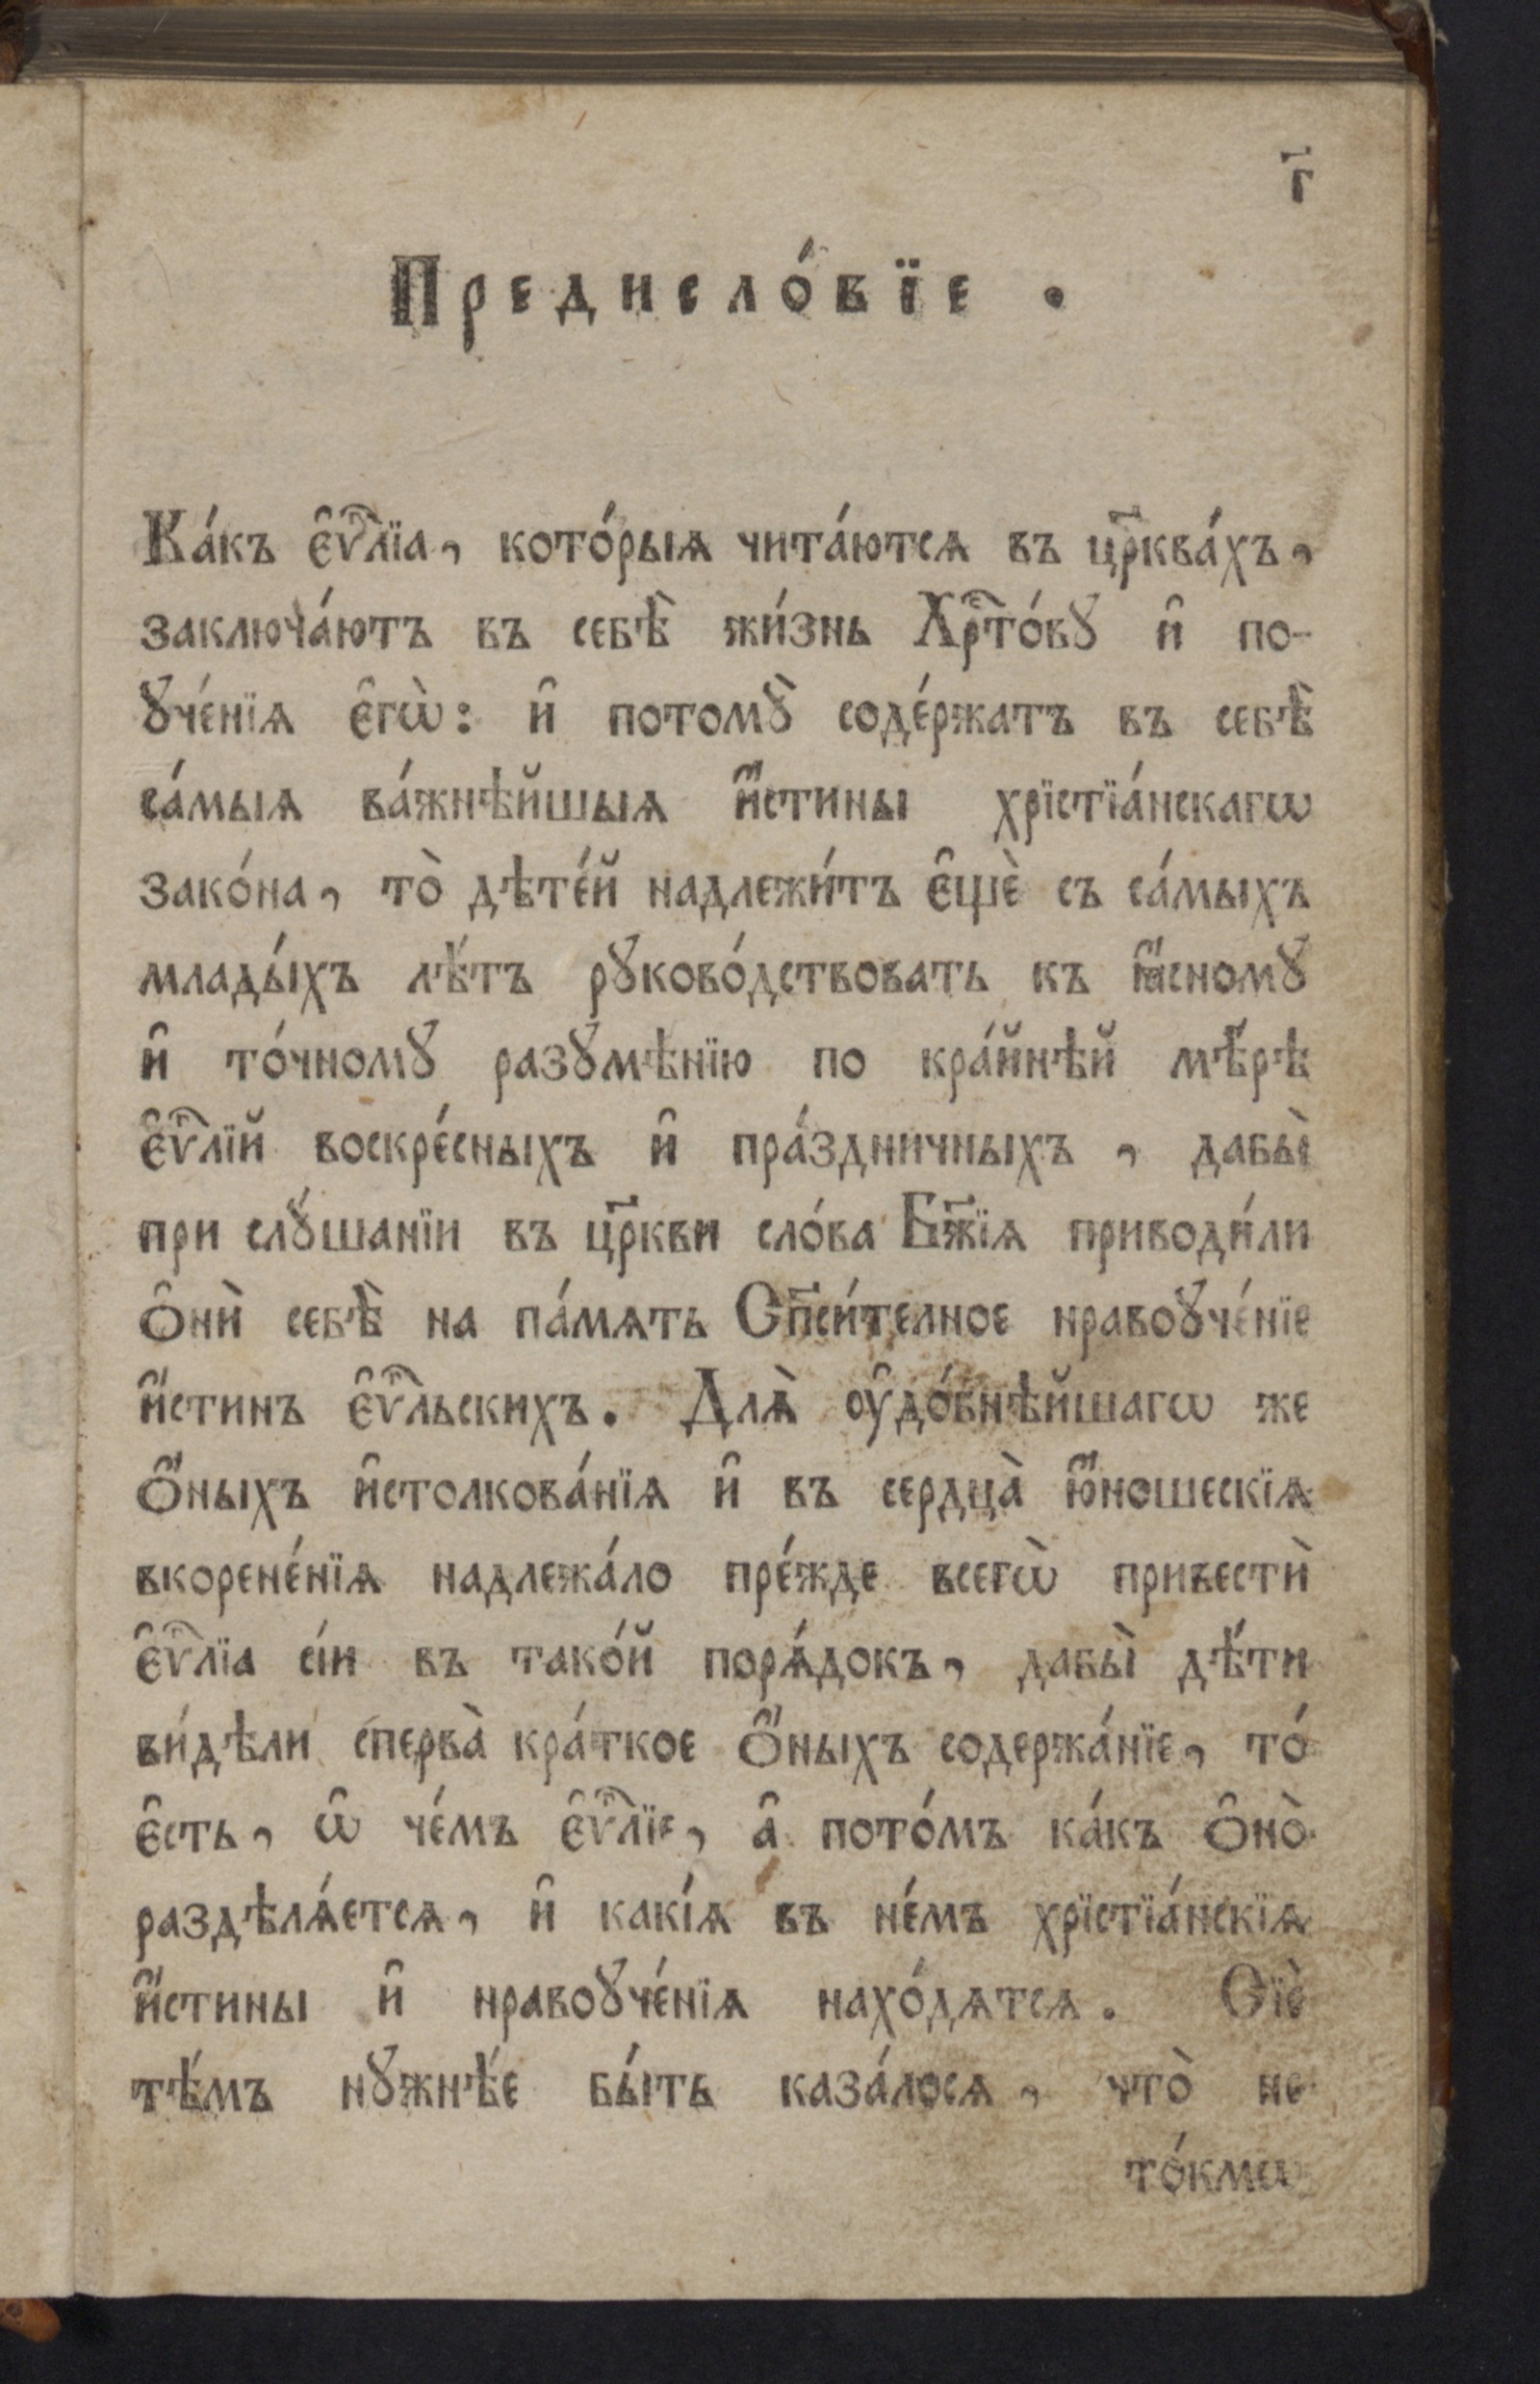 г҃
Предисло́вїе .
Ка́къ є҆ѵⷢ҇лїа, кото́рыѧ чита́ютсѧ въ цр҃ква́хъ,
заключа́ютъ въ себѣ̀ жи́знь Хрⷭ҇то́вꙋ и҆ по-
ꙋче́нїѧ є҆гѡ̀: и҆ потомꙋ̀ соде́ржатъ въ себѣ̀
са́мыѧ ва́жнѣйшыѧ и҆́стины хрїстїа́нскагѡ
зако́на, то̀ дѣте́й надлежи́тъ є҆щѐ съ са́мыхъ
млады́хъ лѣ́тъ рꙋково́дствовать къ ꙗ҆́сномꙋ
и҆ то́чномꙋ разꙋмѣ́нїю по кра́йнѣй мѣ́рѣ
є҆ѵⷢ҇лїй воскре́сныхъ и҆ пра́здничныхъ , дабы̀
при слꙋ́шанїи въ цр҃кви сло́ва Бж҃їѧ приводи́ли
ѻ҆нѝ себѣ̀ на па́мѧть Сп҃си́телное нравоꙋче́нїе
и҆́стинъ є҆ѵⷢ҇льскихъ. Длѧ̀ ᲂу҆до́бнѣйшагѡ же
ѻ҆́ныхъ и҆столкова́нїѧ и҆ въ сердца̀ ю҆́ношескїѧ
вкорене́нїѧ надлежа́ло пре́жде всегѡ̀ привестѝ
є҆ѵⷢ҇лїа сі́и въ тако́й порѧ́докъ, дабы̀ дѣ́ти
ви́дѣли сперва̀ кра́ткое ѻ҆́ныхъ содержа́нїе, то́
є҆сть, ѡ҆ че́мъ є҆ѵⷢ҇лїе, а҆ пото́мъ ка́къ ѻ҆но̀
раздѣлѧ́етсѧ, и҆ какі́ѧ въ не́мъ хрїстїа́нскїѧ
и҆́стины и҆ нравоꙋче́нїѧ нахо́дѧтсѧ. Сїѐ
тѣ́мъ нꙋжнѣ́е бы́ть каза́лосѧ, что̀ не
то́кмѡ